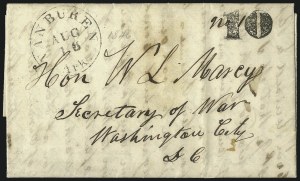 VAN BUREN
AUG
5
ARK.
10
Hon W L Marcy
Secretary of War
Washington City
D C